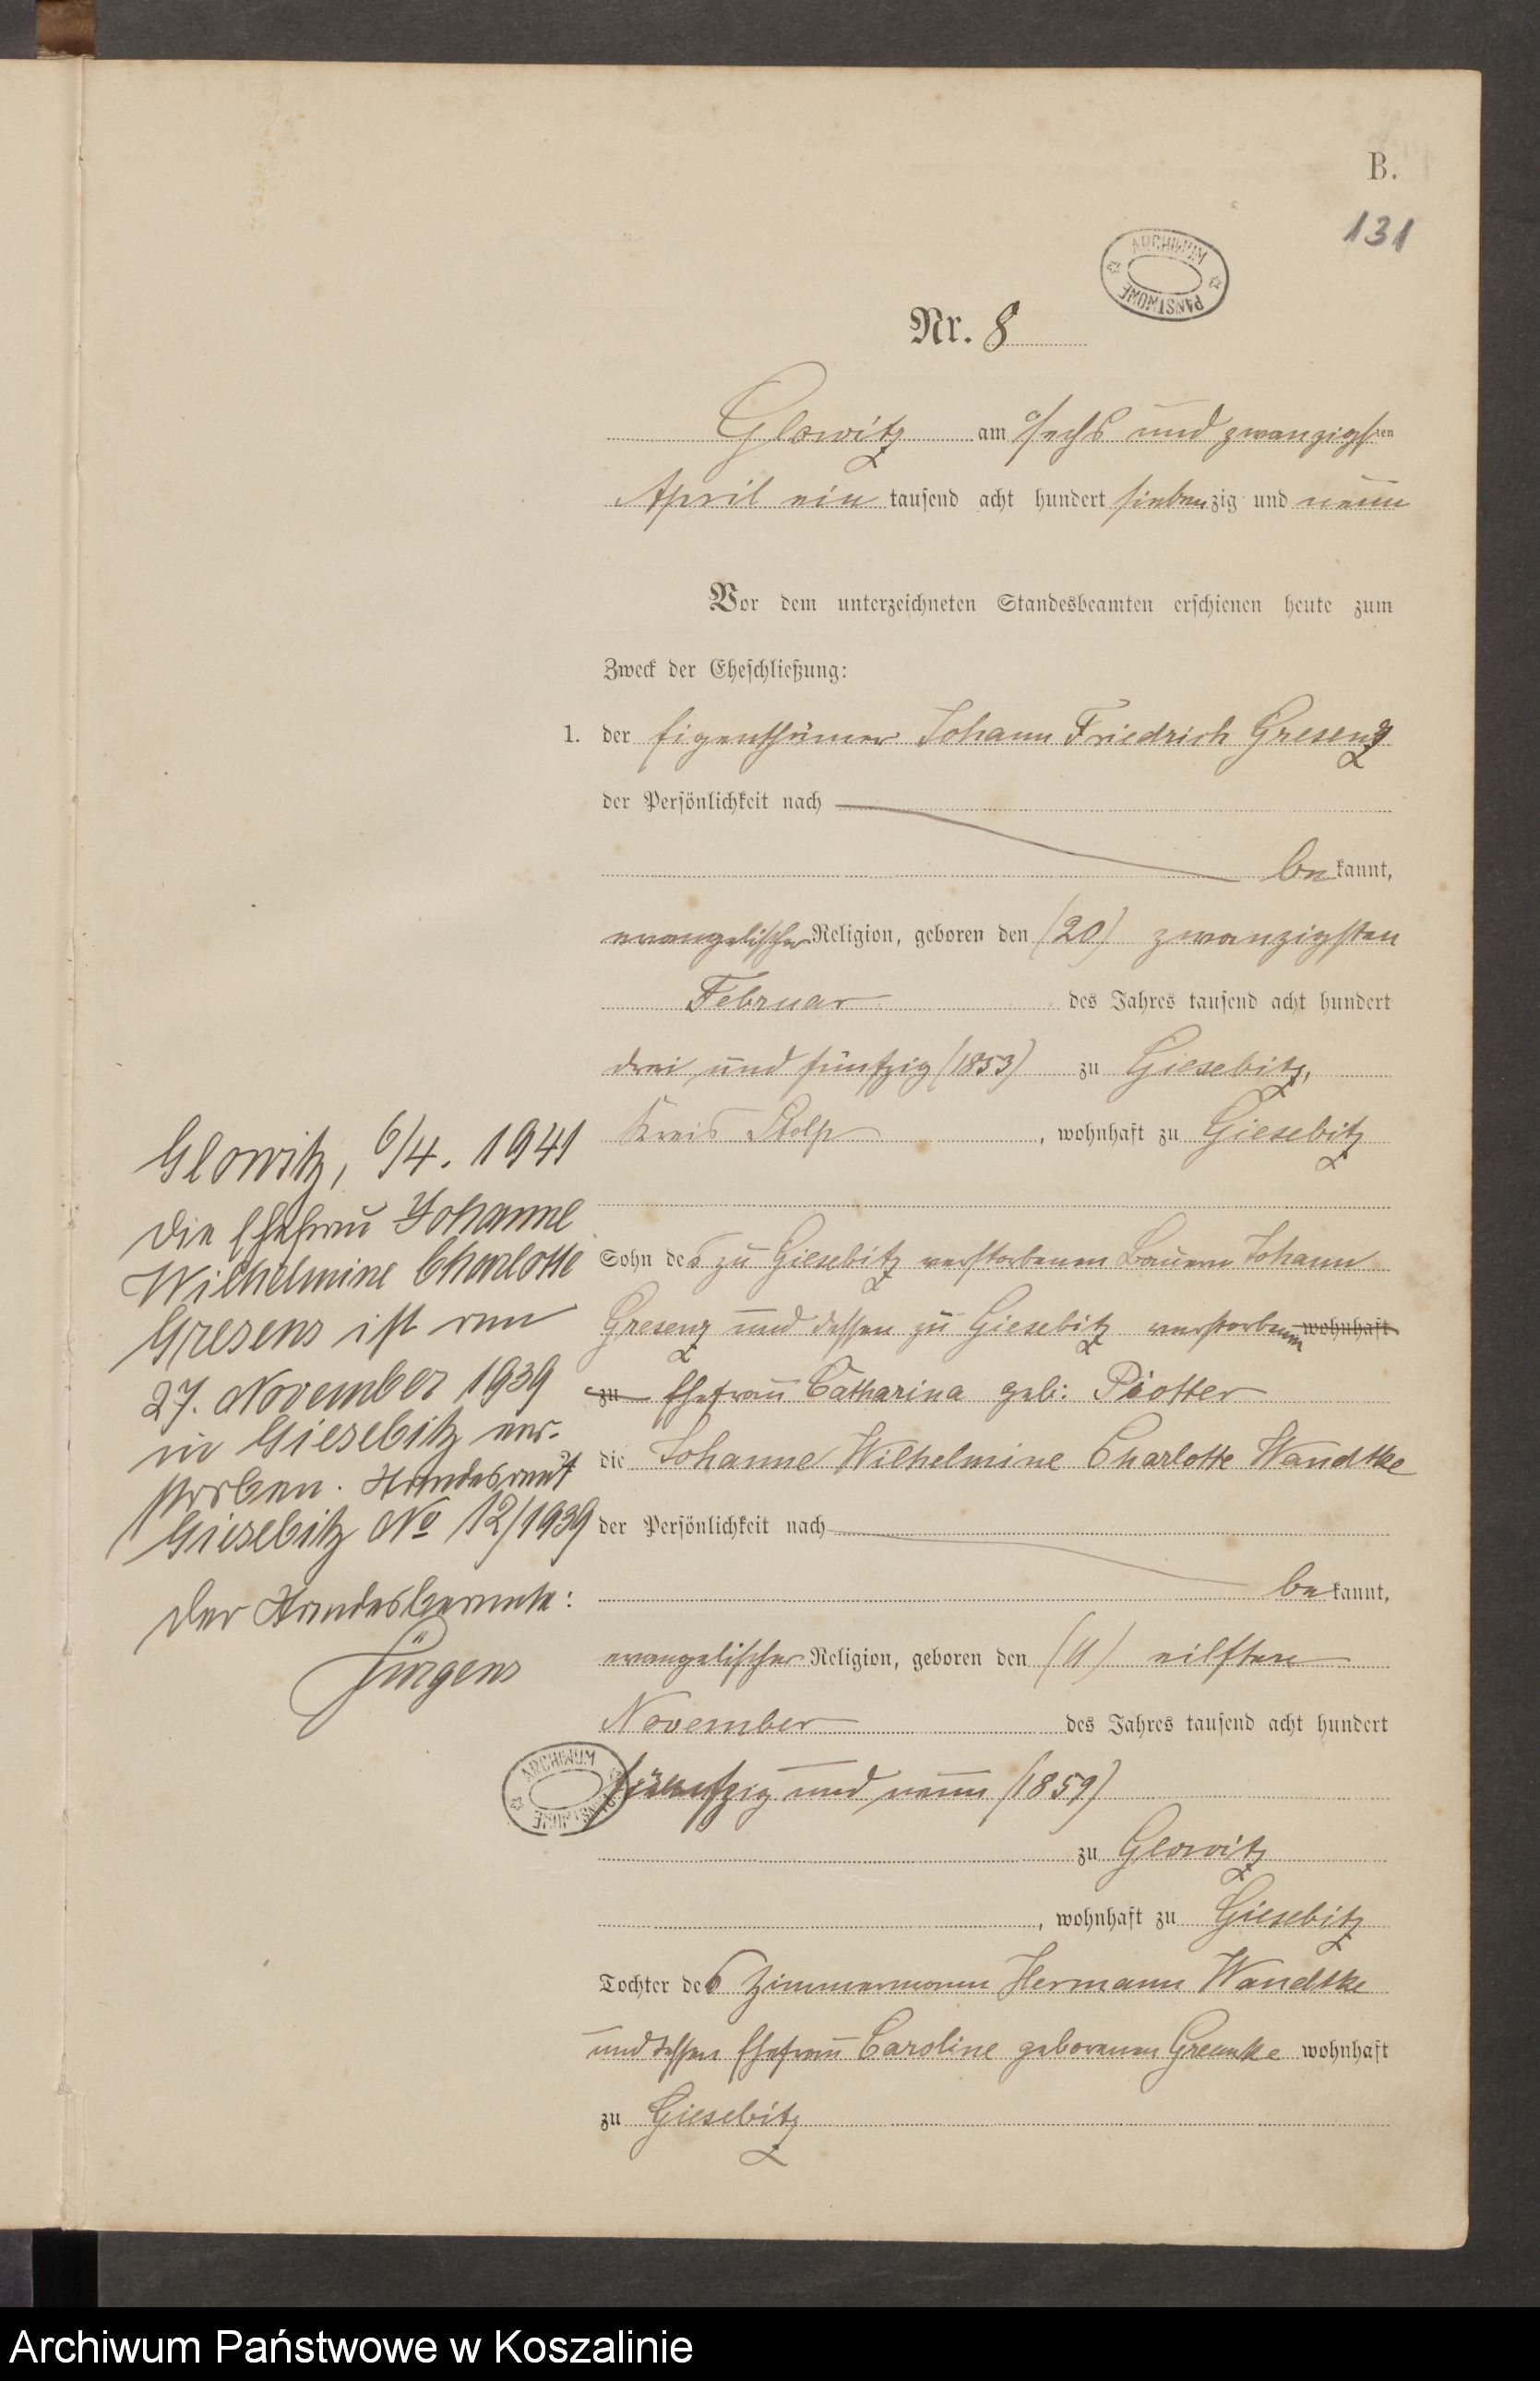 B.
131
ARCHIWUM PAŃSTWOWE
Nr. 8
Glowitz am sechs und zwanzigsten
April ein tausend acht hundert siebenzig und neun
Vor dem unterzeichneten Standesbeamten erschienen heute zum
Zweck der Eheschließung:
1. der Eigenthümer Johann Friedrich Gresenz
der Persönlichkeit nach
bekannt,
evangelischer Religion, geboren den (20) zwanzigsten
Februar des Jahres tausend acht hundert
drei und fünfzig (1853) zu Giesebitz,
Kreis Stolp, wohnhaft zu Giesebitz
Sohn des zu Giesebitz verstorbenen Bauern Johann
Gresenz und dessen zu Giesebitz verstorbenen wohnhaft
zu Ehefrau Catharina geb: Piotter
die Johanne Wilhelmine Charlotte Wandtke
der Persönlichkeit nach
bekannt,
evangelischer Religion, geboren den (11) eilften
November des Jahres tausend acht hundert
fünfzig und neun (1859)
zu Glowitz
, wohnhaft zu Giesebitz
Tochter des Zimmermann Hermann Wandtke
und dessen Ehefrau Caroline geborenen wohnhaft
zu Giesebitz
Glowitz, 6/4. 1941
Die Ehefrau Johanne
Wilhelmine Charlotte
Gresens ist am
27. November 1939
in Giesebitz ver-
storben. Standesamt
Giesebitz No 12/1939
Der Standesbeamte:
Jürgens
ARCHIWUM PAŃSTWOWE
Archiwum Państwowe w Koszalinie